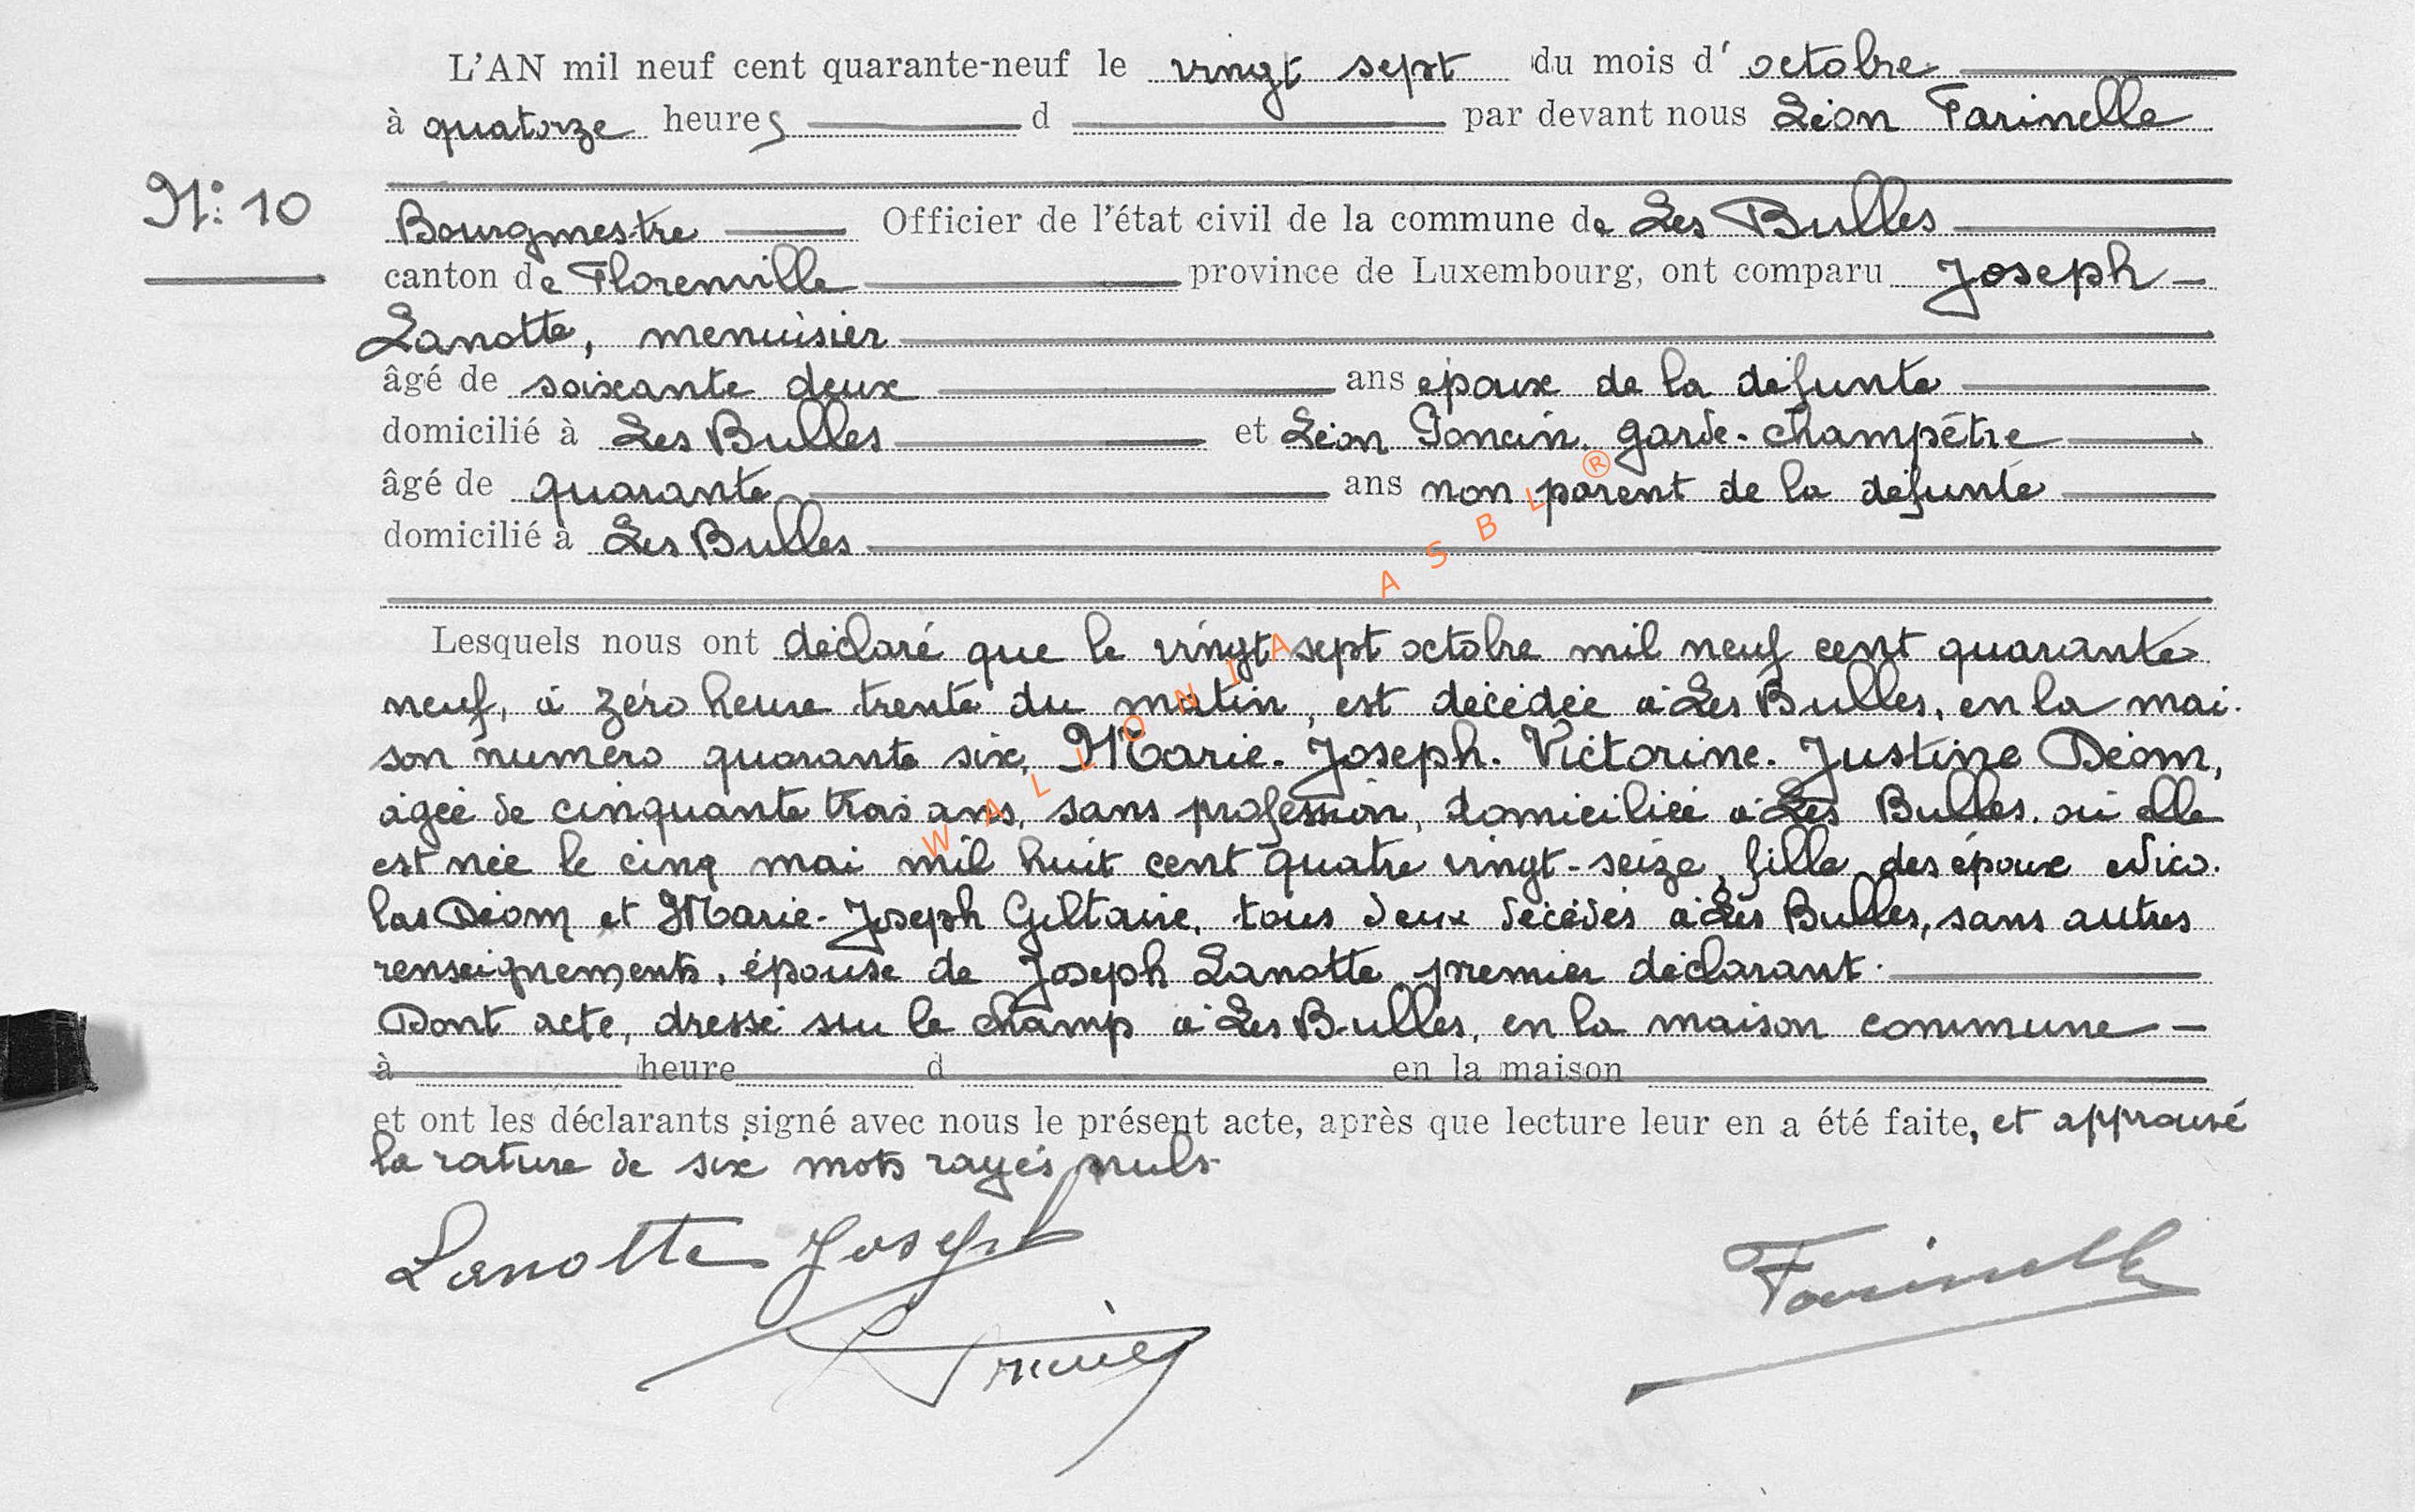 L'AN mil neuf cent quarante-neuf le vingt sept du mois d'octobre
à quatorze heures d par devant nous Léon Farinelle
N: 10
Bourgmestre Officier de l'état civil de la commune de Les Bulles
canton de Florenville province de Luxembourg, ont comparu Joseph
Lanotte, menuisier
âgé de soixante deux ans époux de la défunte
domicilié à Les Bulles et Léon Poncin, garde-champêtre
âgé de quarante ans non parent de la défunte
domicilié à Les Bulles
Lesquels nous ont déclaré que le vingt sept octobre mil neuf cent quarante
neuf, à zéro heure trente du matin, est décédée à Les Bulles, en la mai-
son numéro quarante six, Marie-Joseph-Victorine-Justine Déom,
âgée de cinquante trois ans, sans profession, domiciliée à Les Bulles où elle
est née le cinq mai mil huit cent quatre vingt-seize, fille des époux Nico-
las Déom et Marie-Joseph Giltaire, tous deux décédés à Les Bulles, sans autres
renseignements, épouse de Joseph Lanotte premier déclarant.
Dont acte, dressé sur le champ à Les Bulles, en la maison commune
à heure d en la maison
et ont les déclarants signé avec nous le présent acte, après que lecture leur en a été faite, et approuvé
la rature de six mots rayés nuls.
Lanotte Joseph
Farinelle
WALLONIA ASBL ®